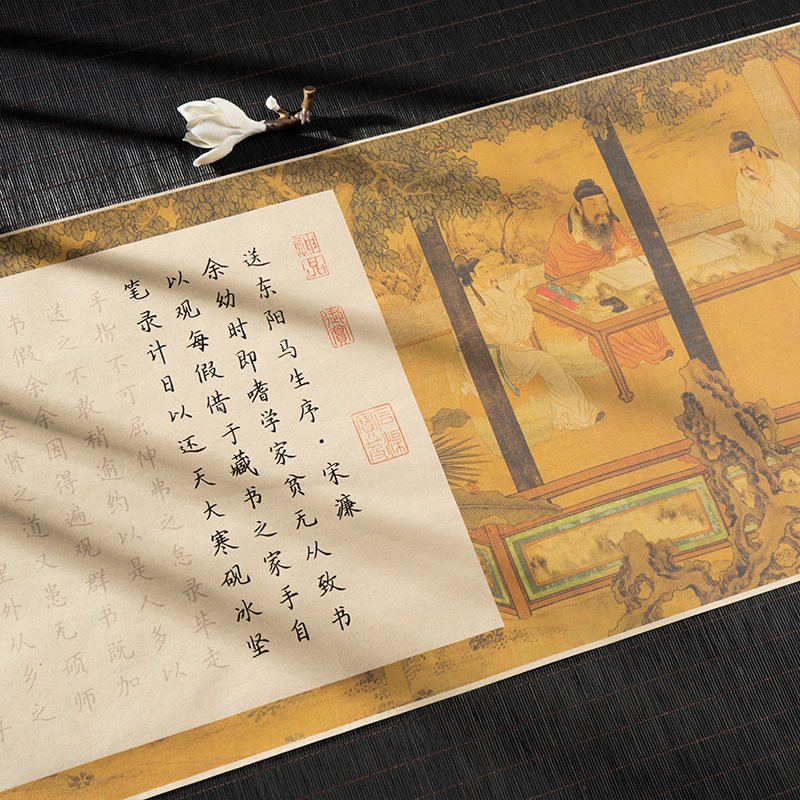 神品
御赏
石渠寶笈
送东阳马生序·宋濂
余幼时即嗜学家贫无从致书
以观每假借于藏书之家手自
笔录计日以还天大寒砚冰坚
手指不可屈伸弗之怠录毕走
送之不敢稍逾约以是人多以
书假余余因得遍观群书既加
圣贤之道又患无硕师
里外从乡之